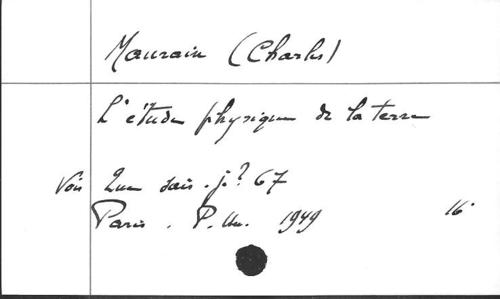 Maurain (Charles)
L'étude physique de la terre
Voir Que sais-je? 67
Paris. P. Un. 1949 16°